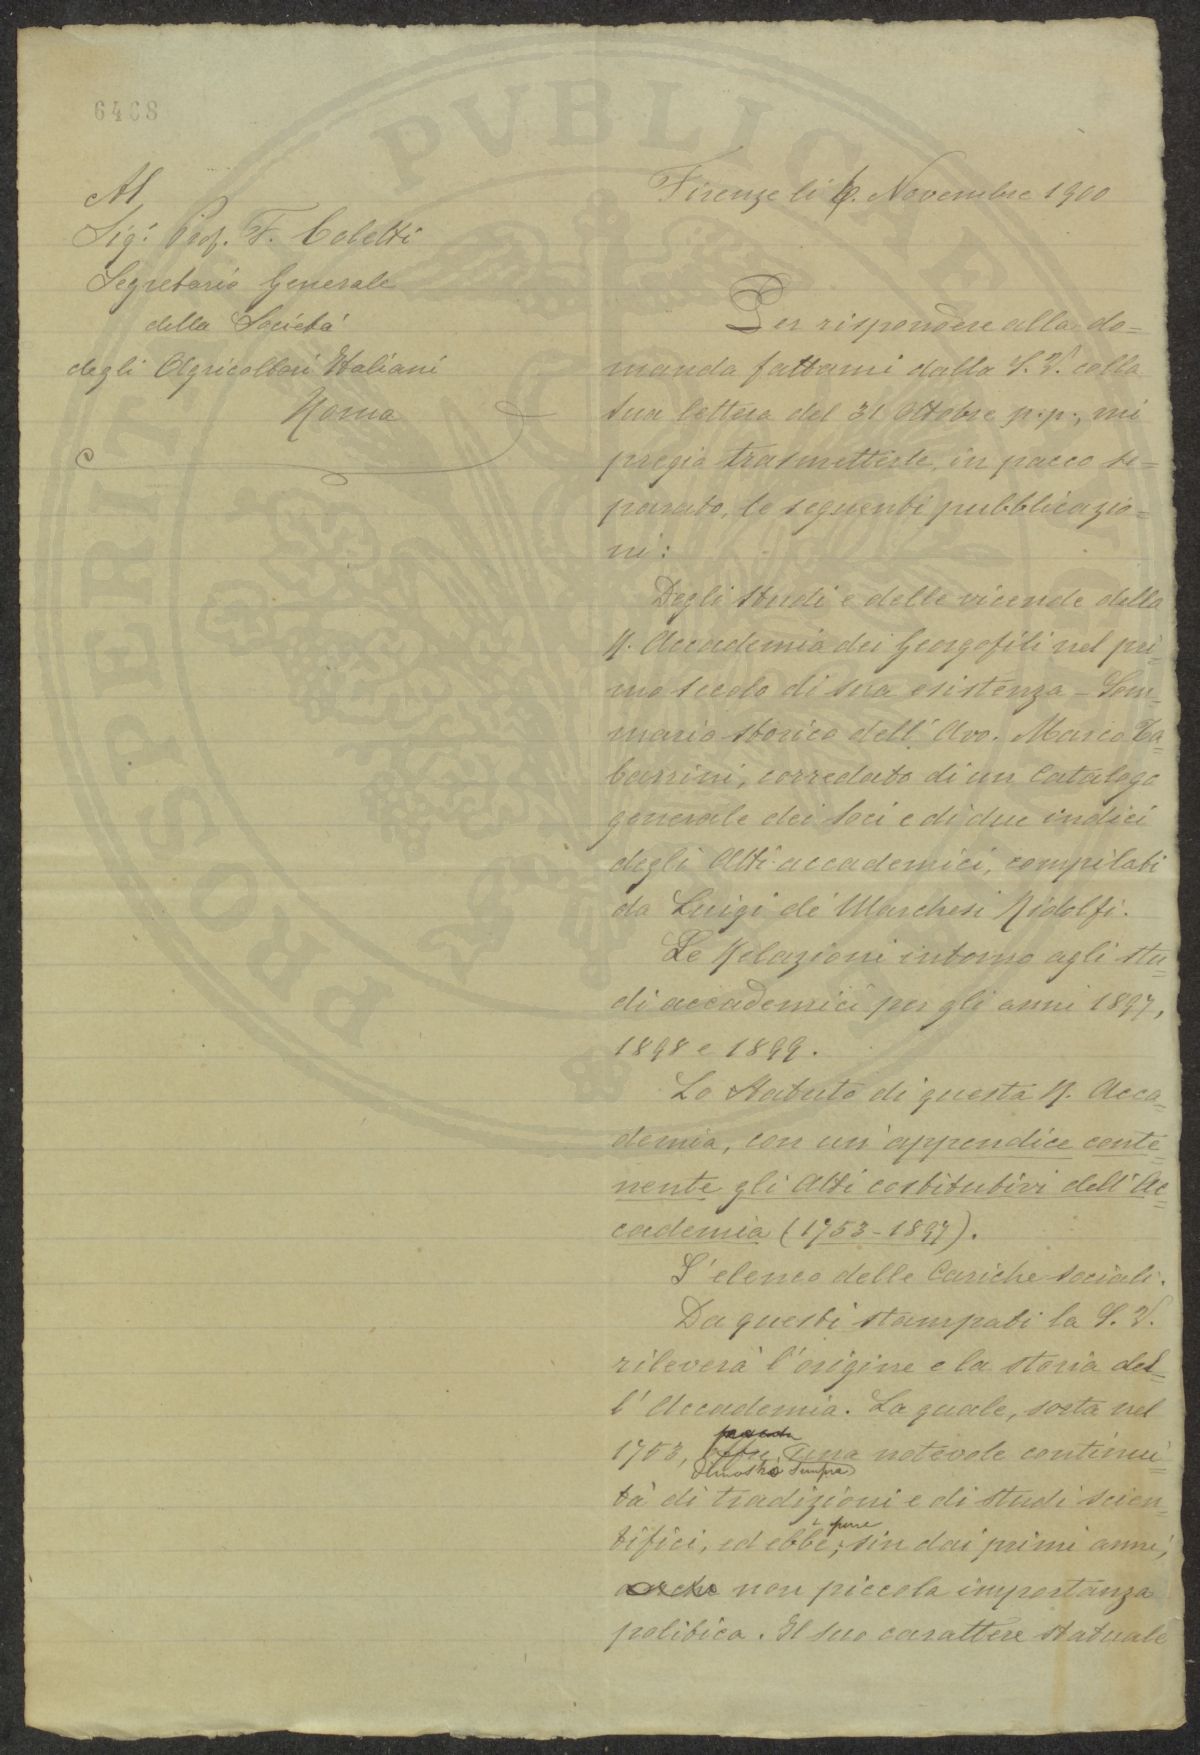 6408
Al
Sig.r Prof. F. Coletti
Segretario Generale
della Società
degli Agricoltori Italiani
Roma
Firenze li 6. Novembre 1900
Per rispondere alla do=
manda fattami dalla S. V. colla
sua lettera del 31 Ottobre p.p., mi
pregio trasmetterle, in pacco se=
parato, le seguenti pubblicazio=
ni:
Degli studi e delle vicende della
R. Accademia dei Georgofili nel pri=
mo secolo di sua esistenza - Som=
mario storico dell'Avv. Marco Ta=
barrini, corredato di un Catalogo
generale dei Soci e di due indici
degli Atti accademici, compilati
da Luigi de' Marchesi Ridolfi.
Le Relazioni intorno agli stu=
di accademici per gli anni 1897,
1898 e 1899.
Lo Statuto di questa R. Acca=
demia, con un'appendice conte=
nente gli Atti costitutivi dell'Ac=
cademia (1753-1897).
L'elenco delle Cariche sociali.
Da questi stampati la S. V.
rileverà l'origine e la storia del=
l'Accademia. La quale, sorta nel
1753, una notevole continui=
dimostrò sempre
tà di tradizioni e di studi scien=
tifici, ed ebbe, pure sin dai primi anni,
anche non piccola importanza
politica. Il suo carattere statuale
PROSPERITATI PVBLICAE AVGENDAE